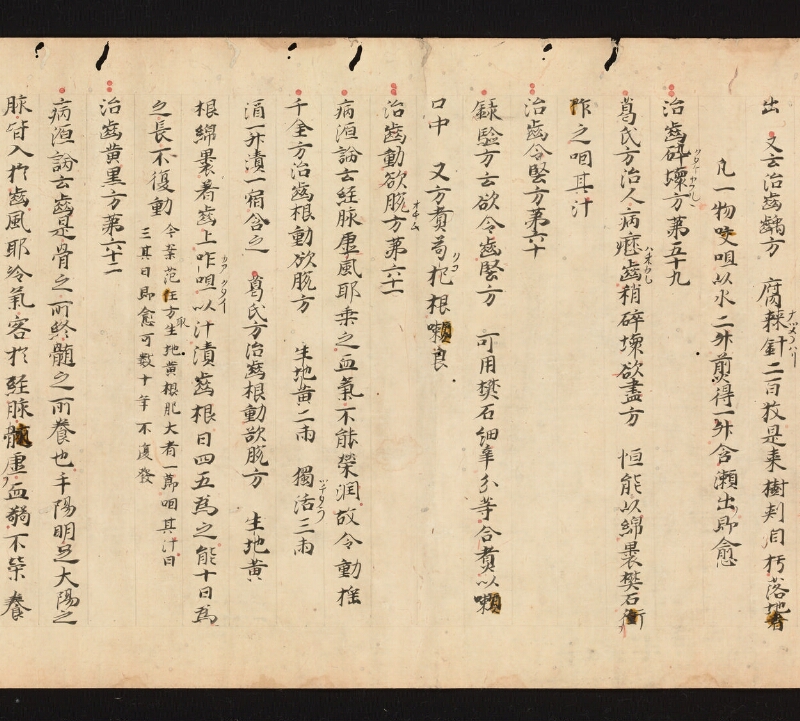 出 又云治齒齲方 腐棘針二百枚是枣樹刾自朽落地者
凡一物㕮咀以水二升煎得一升含瀬出即愈
治齒碎壞方第五十九
葛氏方治人病歴齒稍碎壞欲盡方 恒能以綿裹樊石銜
咋之咽其汁
治齒令堅方第六十
録驗方云欲令齒堅方 可用樊石細辛分等合煮以嗽
口中 又方煮苟杞根嗽良
治齒動欲脱方第六十一
病源論云経脉虚風耶乗之血氣不能榮潤故令動揺
千金方治齒根動欲脱方 生地黄二两 獨活三两
酒一升漬一宿含之 葛氏方治齒根動欲脱方 生地黄
根綿裹着齒上咋咀以汁漬齒根日四五為之能十日為
之長不復動 今案范汪方生地黄根肥大者一節咽其汁日
三其日即愈可数十年不復發
治齒黄黒方第六十二
病源論云齒是骨之所終髓之所養也手陽明足太陽之
脉皆入於齒風耶冷氣客於経脉髓虚血弱不榮養